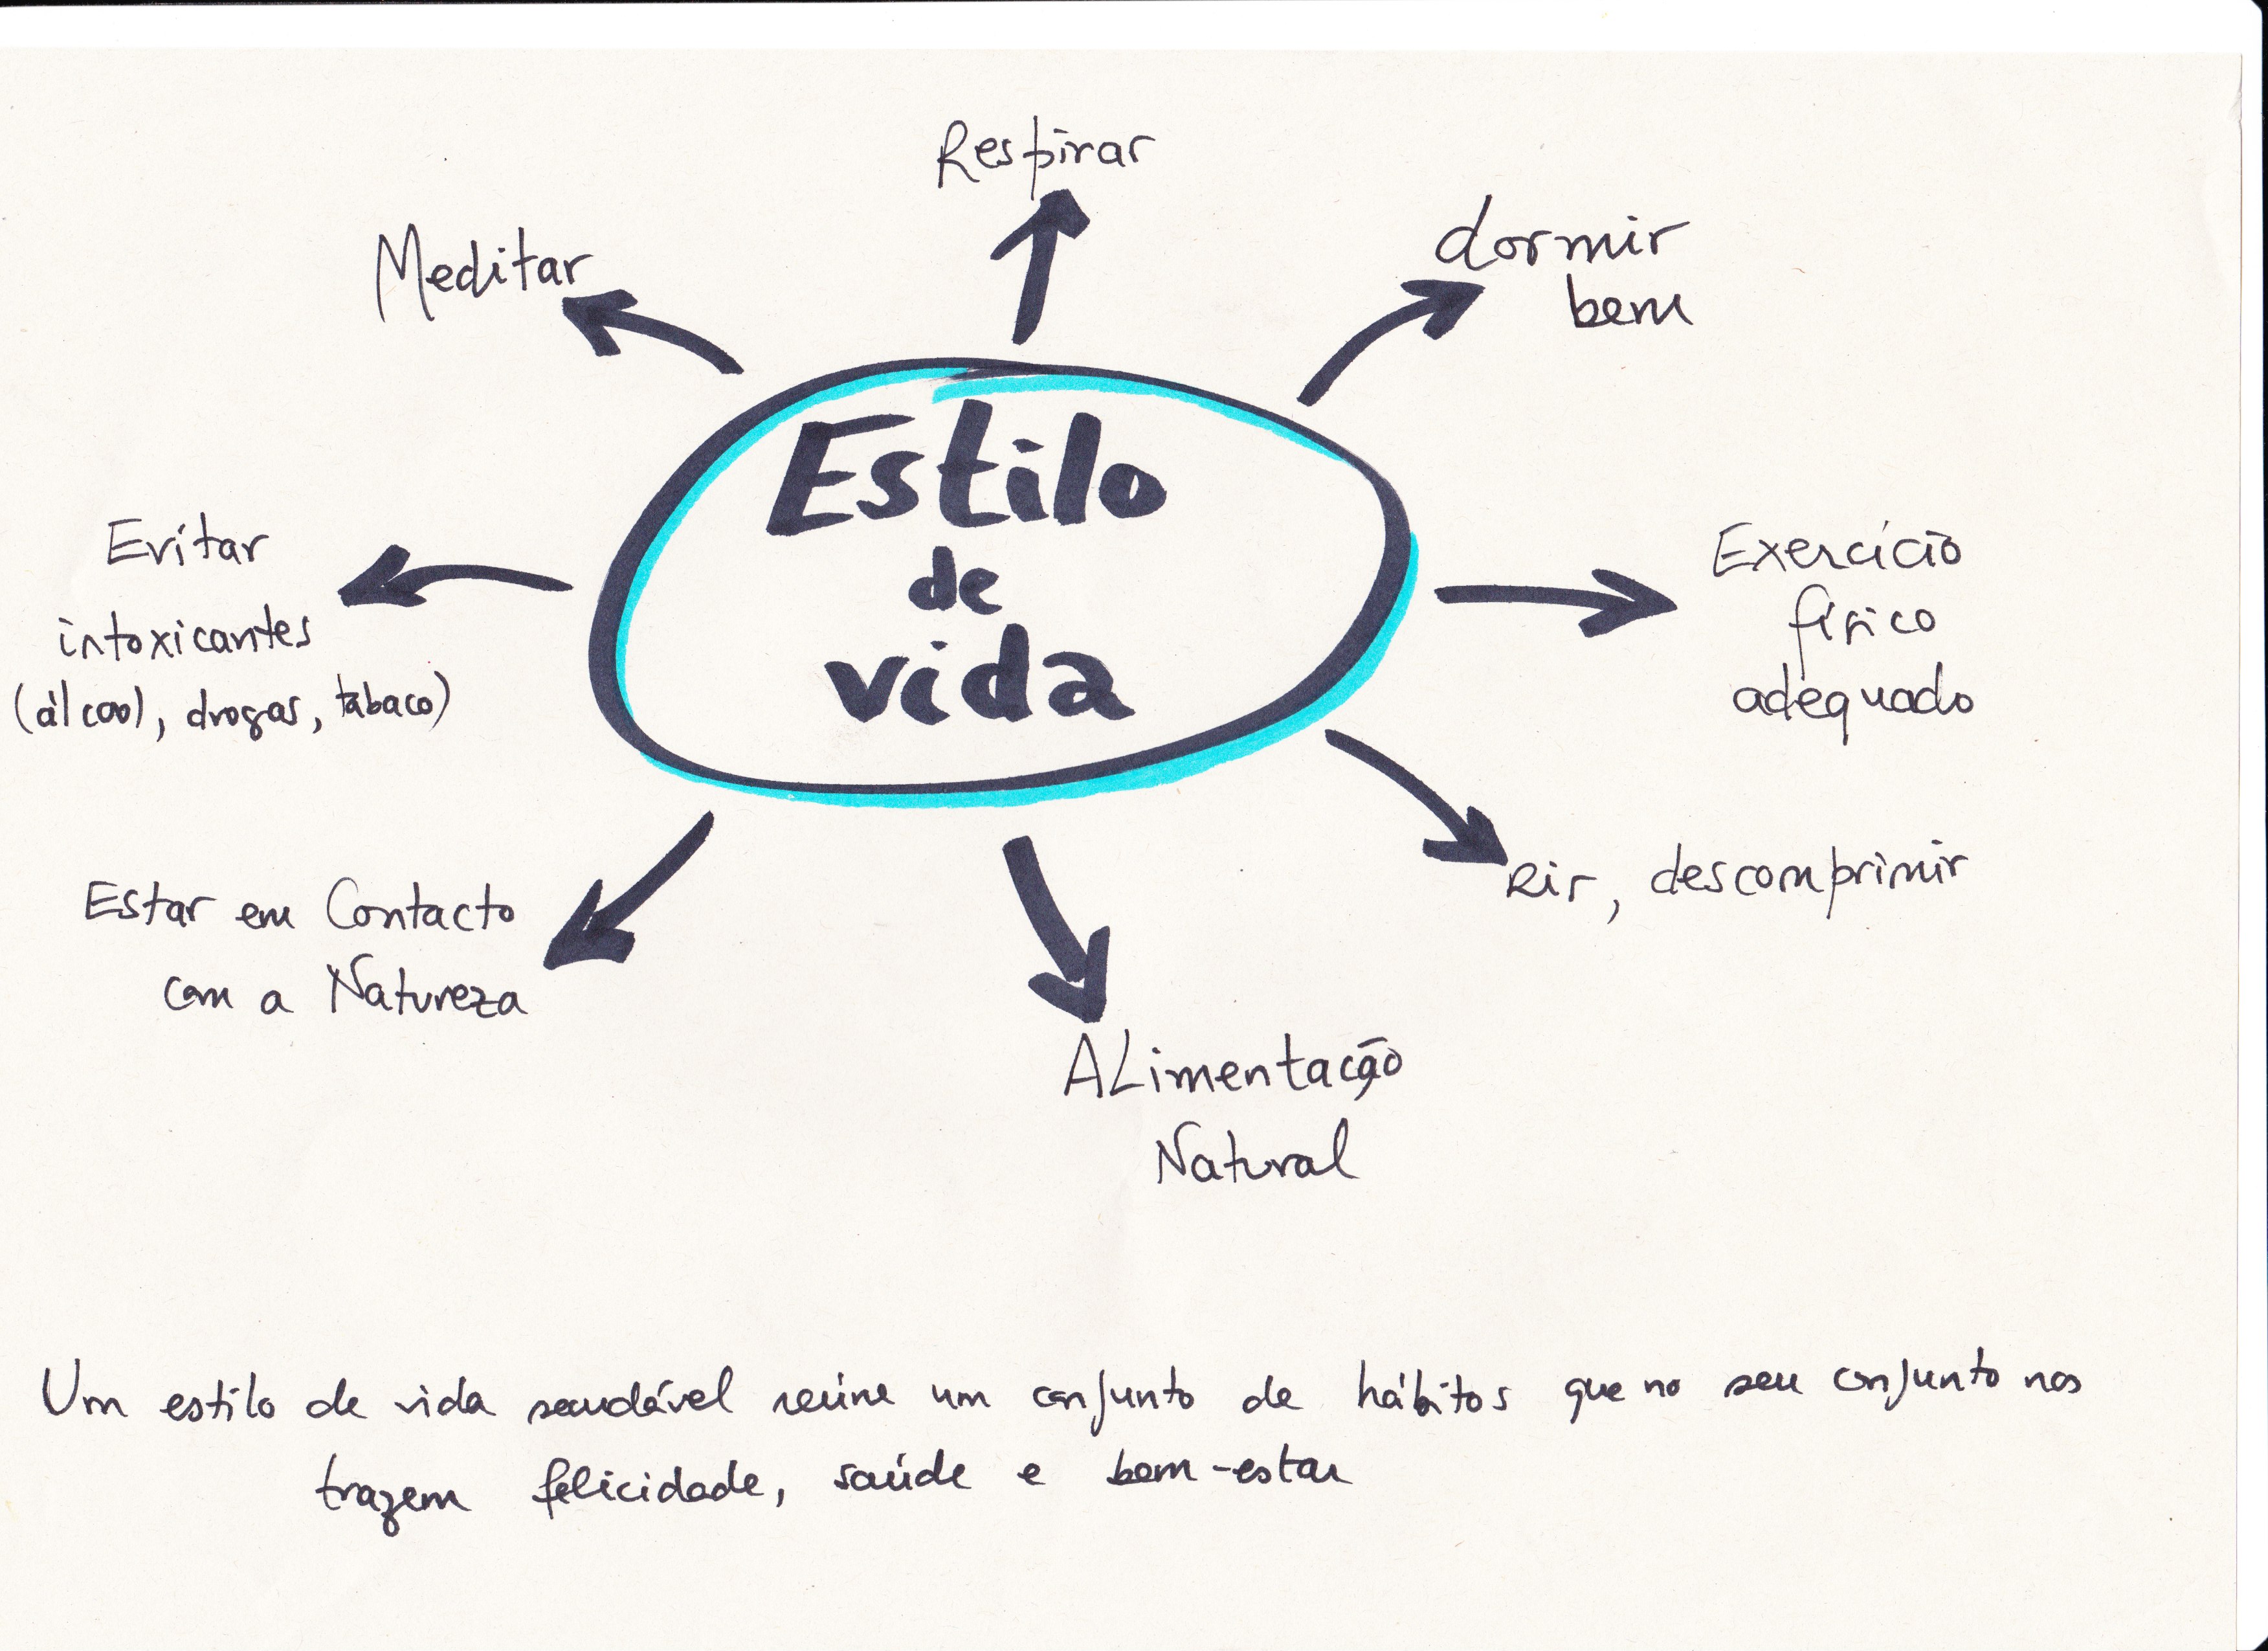 Respirar
Meditar
dormir
bem
Estilo
de
vida
Evitar
intoxicantes
(álcool, drogas, tabaco)
Exercício
físico
adequado
Rir, descomprimir
Estar em Contacto
com a Natureza
ALimentação
Natural
Um estilo de vida saudável reúne um conjunto de hábitos que no seu conjunto nos
trazem felicidade, saúde e bem-estar